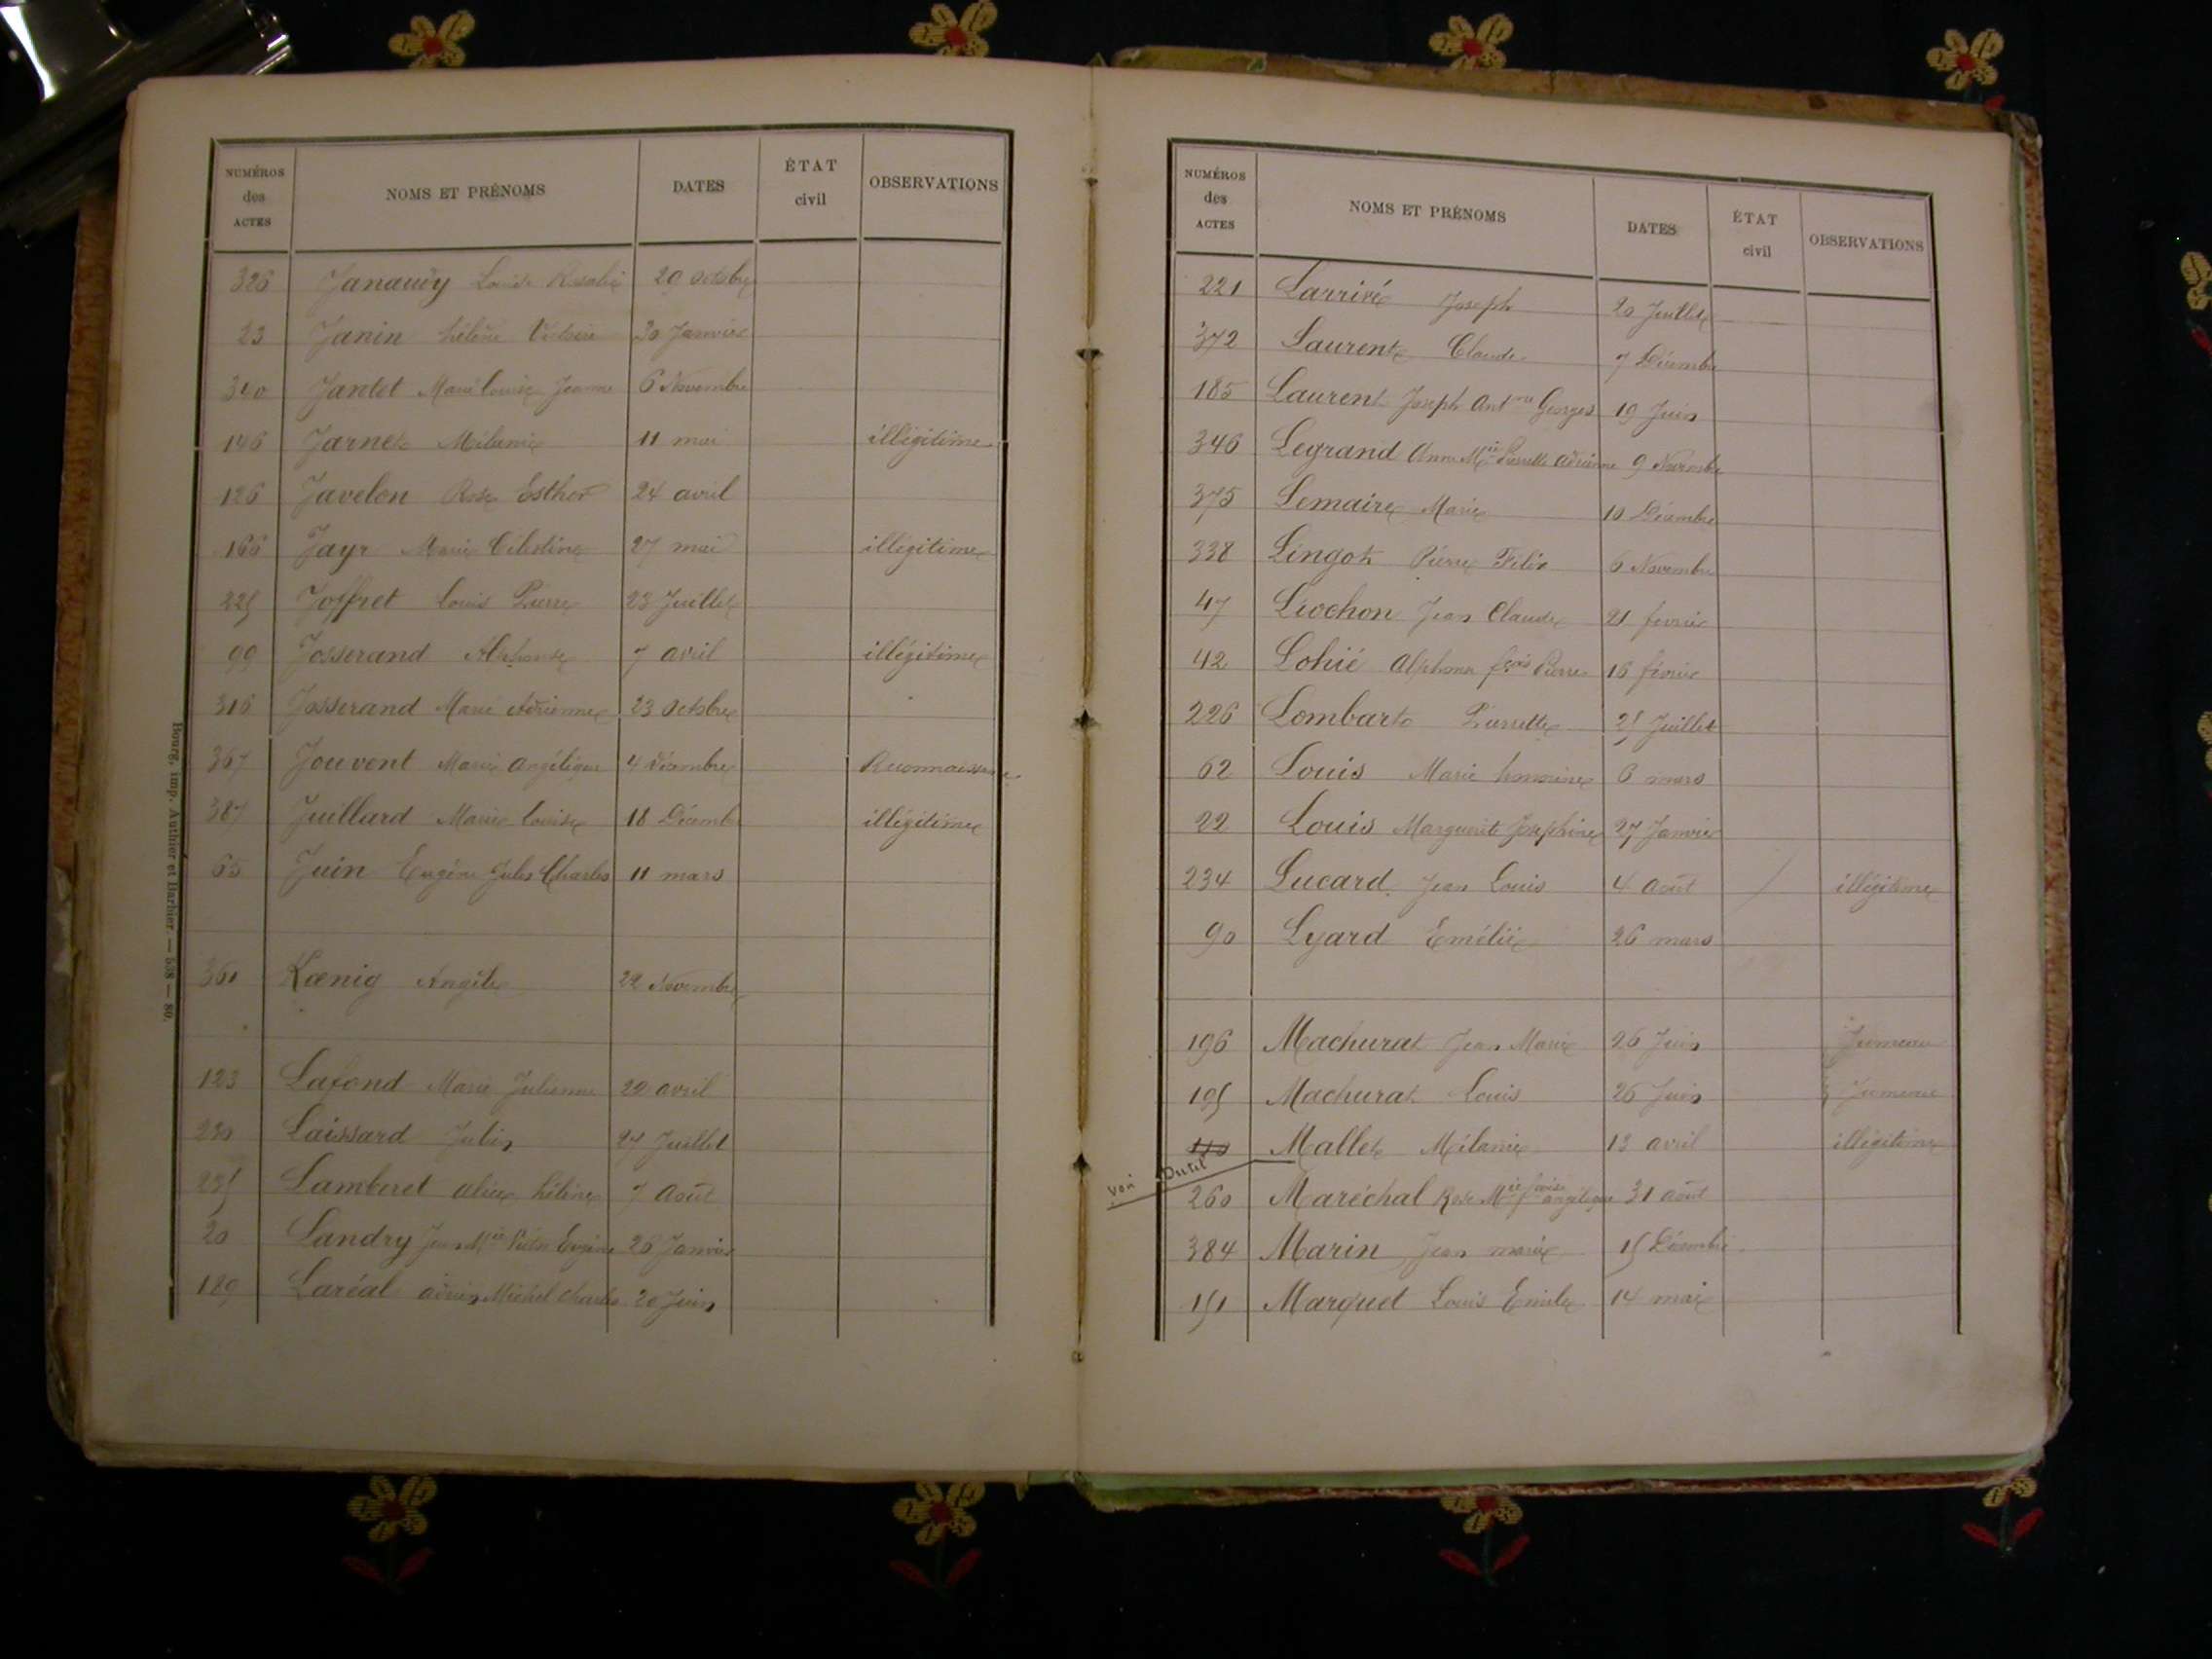 NUMÉROS des ACTES NOMS ET PRÉNOMS DATES ÉTAT civil OBSERVATIONS
326 Janaudy Louise Rosalie 20 octobre
23 Janin hélène Victoire 30 Janvier
340 Jantet Marie Louise Jeanne 6 Novembre
146 Jarnet Mélanie 11 mai illégitime
126 Javelon Rose Esther 24 avril
166 Jayr Marie Célestine 27 mai illégitime
225 Joffret Louis Pierre 23 Juillet
99 Josserand Alphonse 7 avril illégitime
316 Josserand Marie Adrienne 23 octobre
367 Jouvent Marie angélique 4 Décembre Reconnaissance
387 Juillard Marie Louise 18 Décembre illégitime
65 Juin Eugène Jules Charles 11 mars
361 Kœnig Angèle 22 Novembre
123 Lafond Marie Julienne 22 avril
230 Laissard Julien 27 Juillet
235 Lamberet alice hélène 7 août
20 Landry Jean Mie Victor Eugène 26 Janvier
189 Laréal adrien Michel Charles 20 Juin
Bourg, imp. Authier et Barbier. — 538 — 89.
NUMÉROS des ACTES NOMS ET PRÉNOMS DATES ÉTAT civil OBSERVATIONS
221 Larrivé Joseph 20 Juillet
372 Laurent Claude 7 Décembre
185 Laurent Joseph Antne Georges 19 Juin
346 Legrand Anne Mie Pierrette adrienne 9 Novembre
375 Lemaire Marie 10 Décembre
338 Lingot Pierre Félix 6 Novembre
47 Livchon Jean Claude 21 février
42 Lohié Alphonse fçois Pierre 16 février
226 Lombart Pierrette 25 Juillet
62 Louis Marie 6 mars
22 Louis Marguerite Josephine 27 Janvier
234 Lucard Jean Louis 4 août / illégitime
90 Lyard Emélie 26 mars
196 Machurat Jean Marie 26 Juin Jumeau
195 Machurat Louis 26 Juin Jumeau
110 Mallet Mélanie 13 avril illégitime
Voir Dutel
260 Maréchal Rose Mie fçoise angélique 31 août
384 Marin Jean marie 15 Décembre
151 Marquet Louis Emile 14 mai